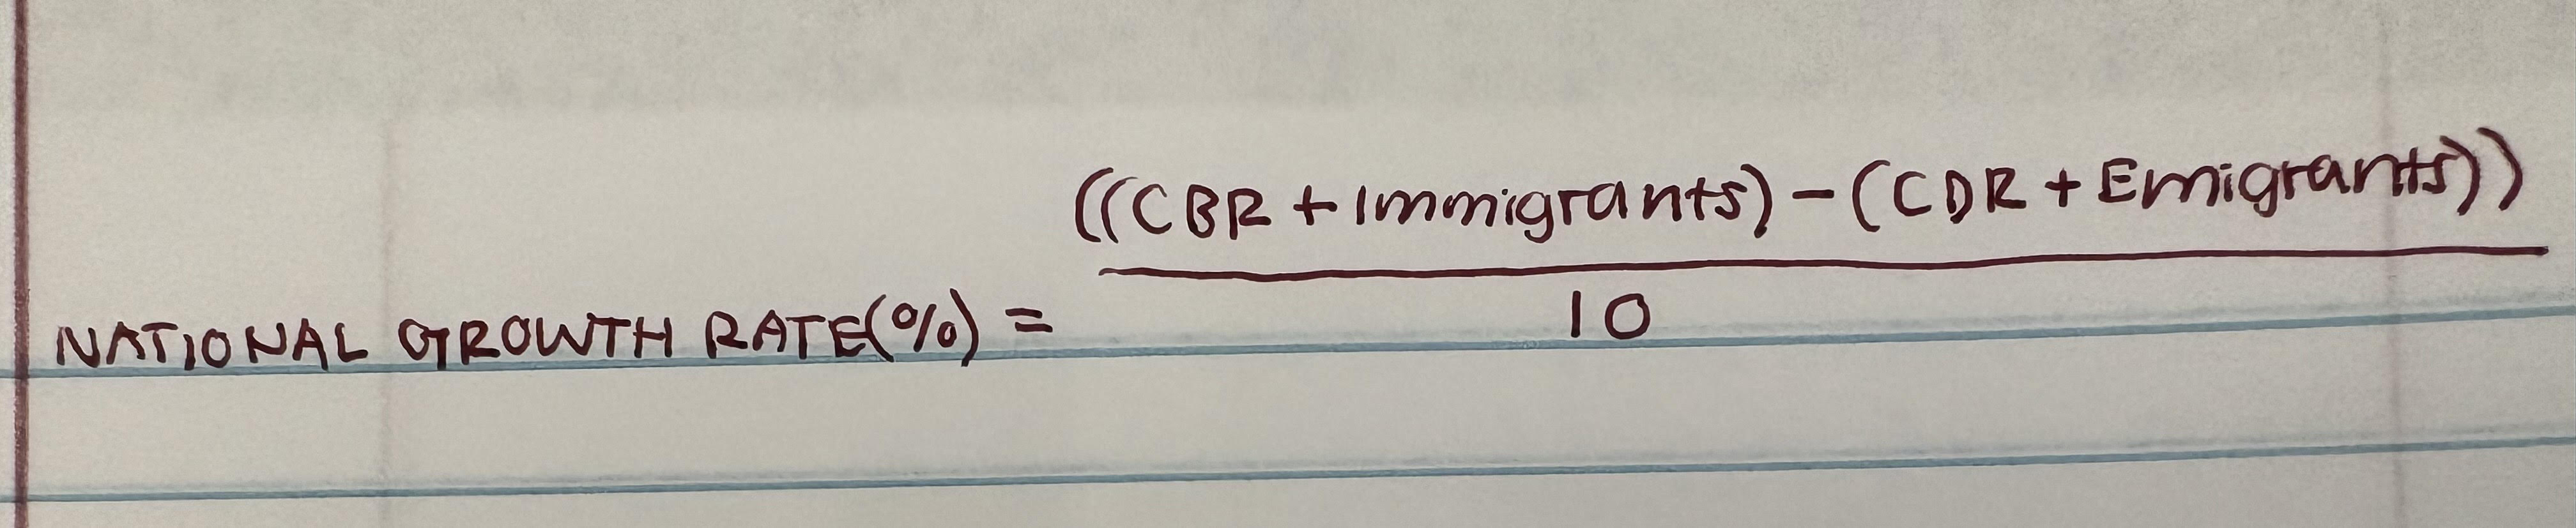 ((CBR + Immigrants) - (CDR + Emigrants))
NATIONAL GROWTH RATE(%) =
10